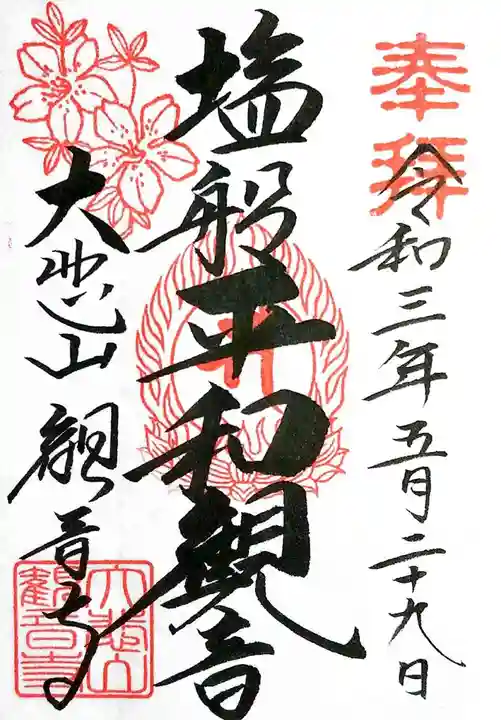 奉拝
令和三年五月二十九日
塩船平和觀音
大悲山 観音寺
大悲山
觀音寺